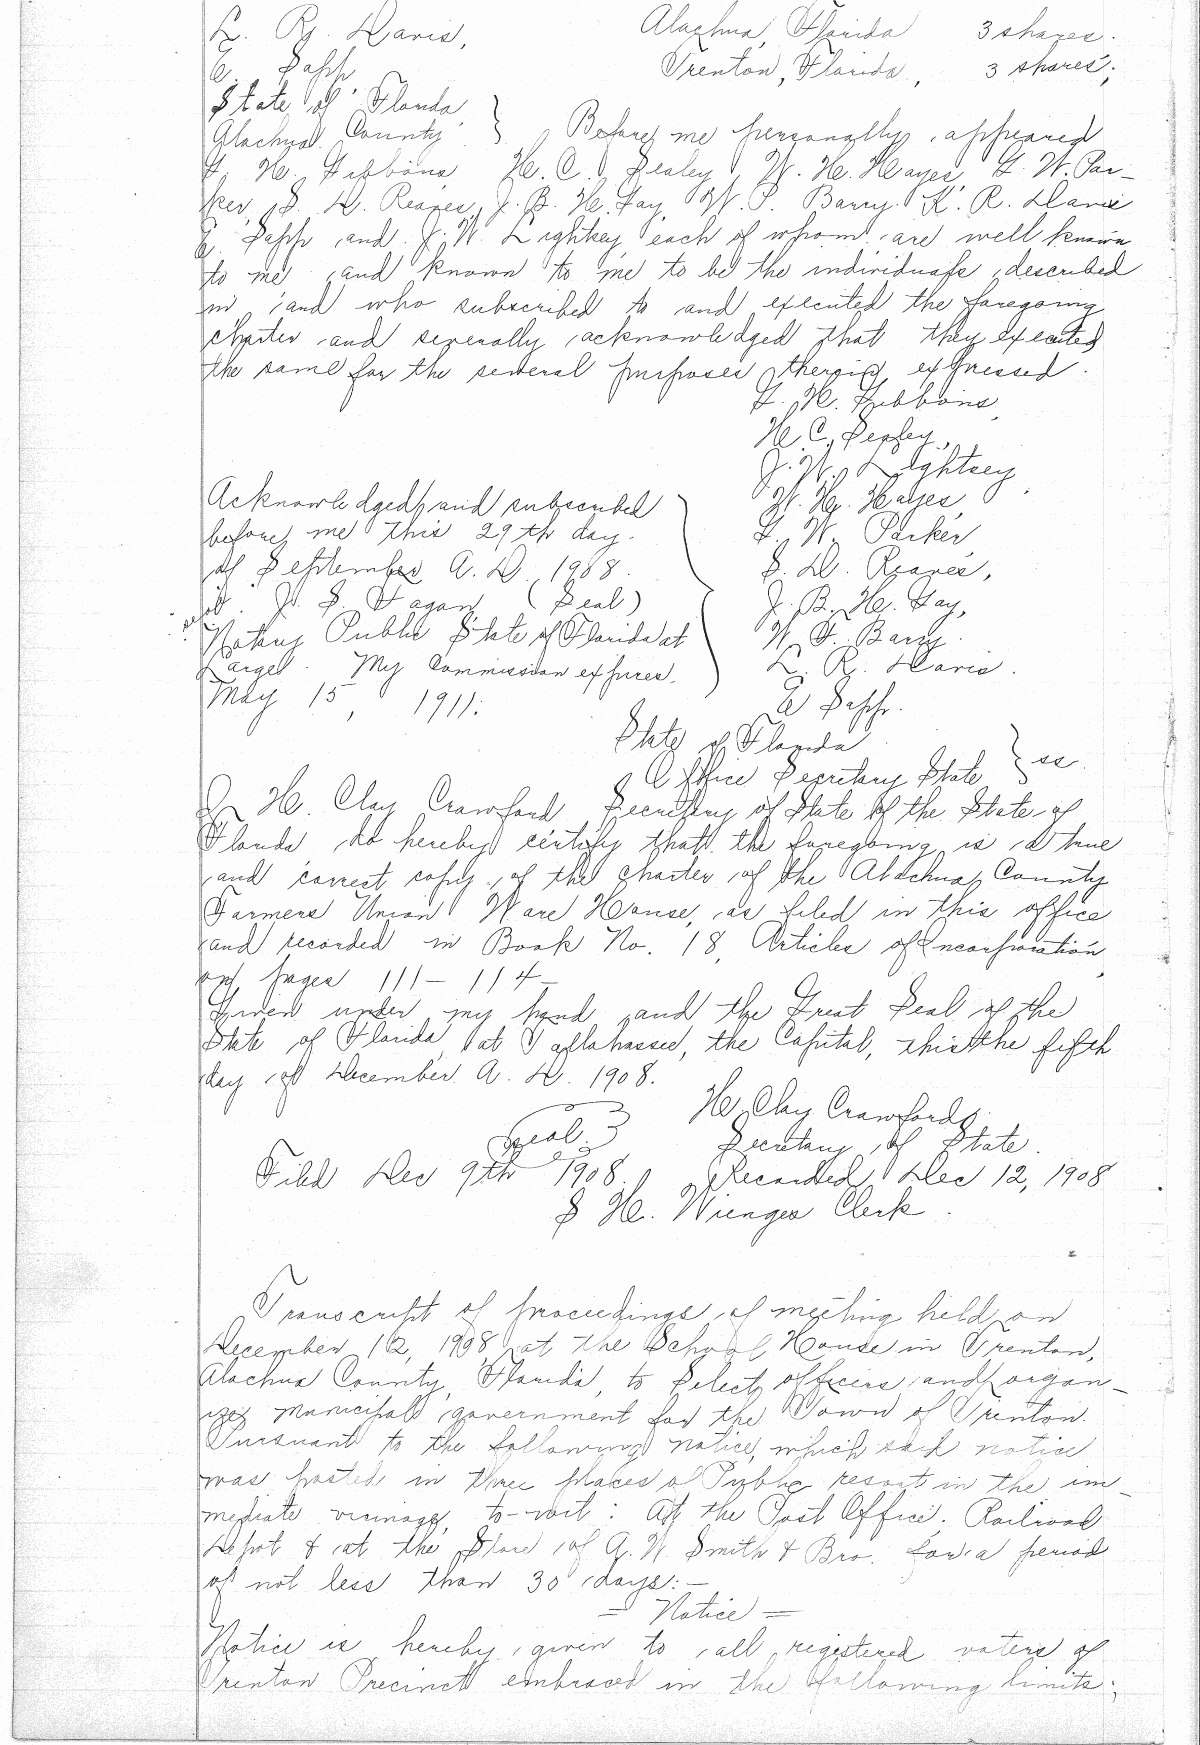 L. R. Davis, Alachua, Florida 3 shares.
E. Sapp Trenton, Florida, 3 shares;
State of Florida,
Alachua County } Before me personally appeared
G. H. Gibbons H. C. Sealey, W. H. Hayes, G. W. Par-
ker, S. D. Reaves, J. B. H. Gay, W. P. Barry. K. R. Davis
E. Sapp and J. W. Lightsey each of whom are well known
to me and known to me to be the individuals described
in and who subscribed to and executed the foregoing
charter and severally acknowledged that they executed
the same for the several purposes therein expressed.
G. H. Gibbons,
H. C. Sealey,
J. W. Lightsey
Acknowledged and subscribed W. H. Hayes,
before me this 29th day. G. W. Parker,
of September A. D. 1908. S. D. Reaves,
J. S. Fagan (Seal) J. B. H. Gay,
Notary Public State of Florida at W. F. Barry.
Large. My Commission expires. L. R. Davis.
May 15, 1911. E Sapp.
State of Florida
Office Secretary State } ss.
I, H. Clay Crawford Secretary of State of the State of
Florida do hereby certify that the foregoing is a true
and correct copy of the charter of the Alachua County
Farmers Union Ware House, as filed in this office
and recorded in Book No. 18, Articles of Incorporation
on pages 111-114-
Given under my hand and the Great Seal of the
State of Florida, at Tallahassee, the Capital, this the fifth
day of December A. D. 1908.
H. Clay Crawford,
Seal. Secretary of State.
Filed Dec 9th 1908. Recorded Dec 12, 1908
S H. Wienges Clerk.
Transcript of proceedings of meeting held on
December 12, 1908 at the School House in Trenton,
Alachua County, Florida, to Select officers and organ-
ize municipal government for the Town of Trenton.
Pursuant to the following notice, which said notice
was posted in three places of Public resort in the im-
mediate vicinage, to-wit: At the Post Office. Railroad
Depot & at the Store of A. W. Smith & Bro. for a period
of not less than 30 days:-
= Notice =
Notice is hereby given to all registered voters of
Trenton Precinct embraced in the following limits: